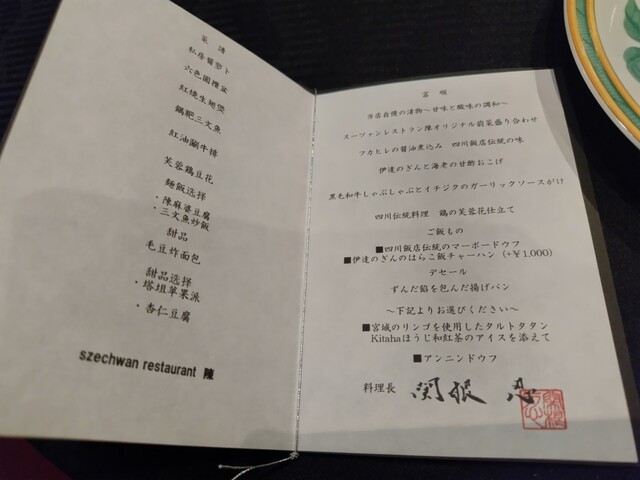 菜譜
私房醤瓜卜
六色圓檯盆
紅焼生翅煲
鍋粑三文魚
紅油涮牛排
芙蓉鶏豆花
麺飯选择
・陳麻婆豆腐
・三文魚炒飯
甜品
毛豆炸面包
甜品选择
・塔坦苹果派
・杏仁豆腐
szechwan restaurant 陳
当店自慢の漬物～甘味と酸味の調和～
スーツァンレストラン陳オリジナル前菜盛り合わせ
フカヒレの醤油煮込み 四川飯店伝統の味
伊達のぎんと海老の甘酢おこげ
黒毛和牛しゃぶしゃぶとイチジクのガーリックソースがけ
四川伝統料理 鶏の芙蓉花仕立て
ご飯もの
■四川飯店伝統のマーボードウフ
■伊達のぎんのはらこ飯チャーハン (+￥1,000)
デセール
ずんだ餡を包んだ揚げパン
～下記よりお選びください～
■宮城のリンゴを使用したタルトタタン
Kitahaほうじ和紅茶のアイスを添えて
■アンニンドウフ
料理長 関根